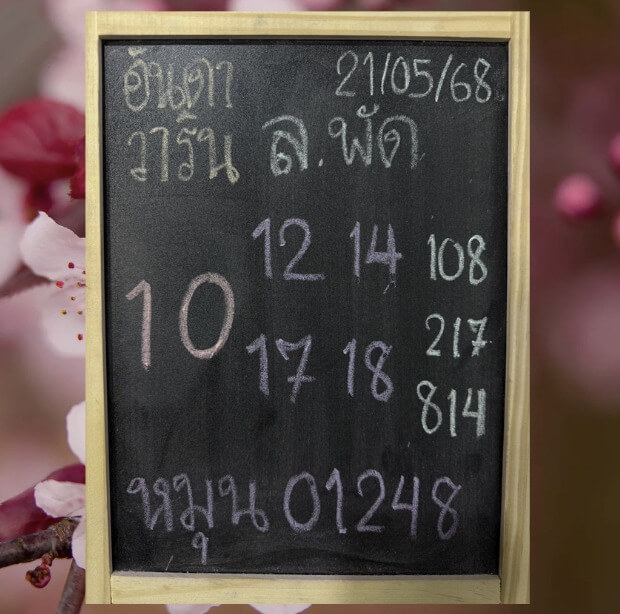 อันดา 21/05/68
วาริน ล.พัด
12 14 108
1 0
217
17 18
814
หมุน 01248